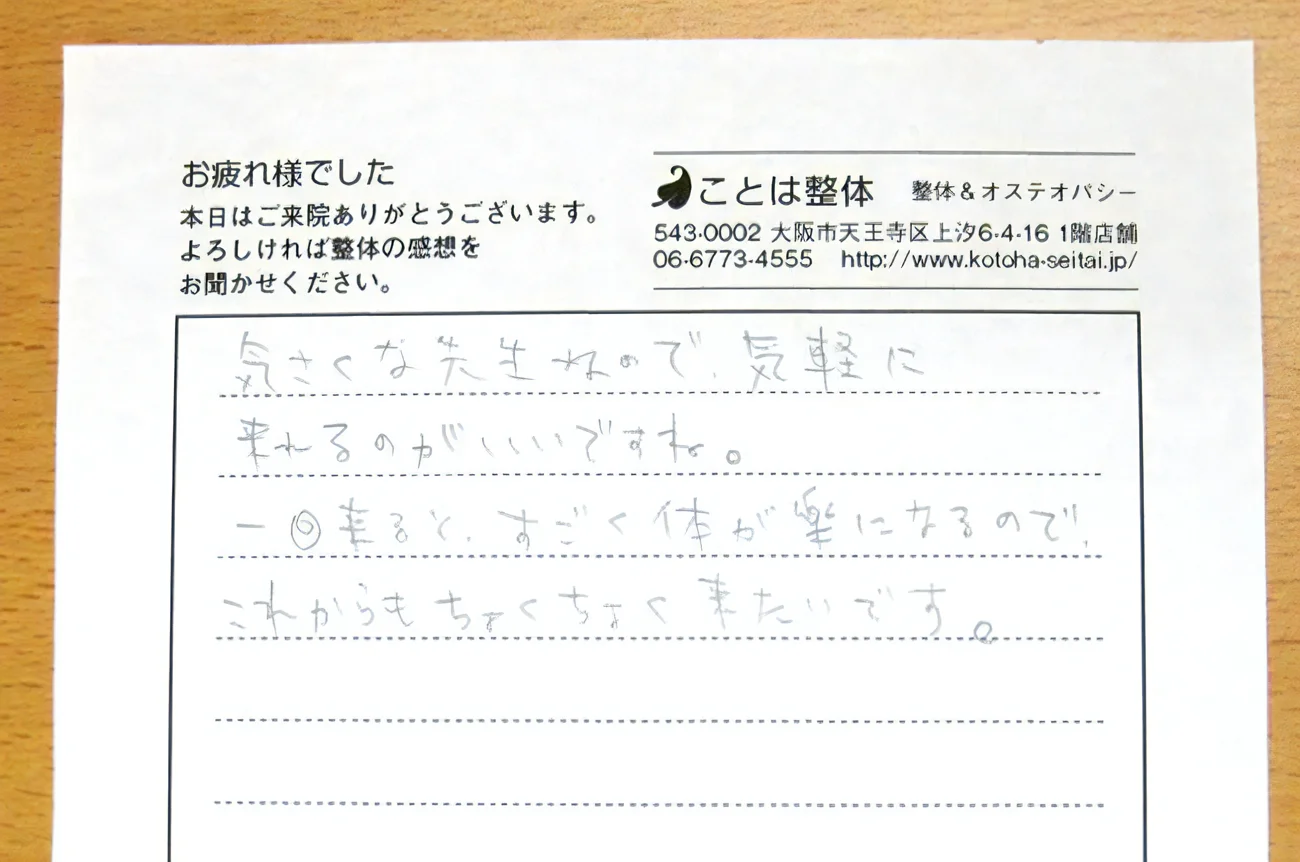 お疲れ様でした
本日はご来院ありがとうございます。
よろしければ整体の感想を
お聞かせください。
ことは整体 整体&オステオパシー
543-0002 大阪市天王寺区上汐6-4-16 1階店舗
06-6773-4555 http://www.kotoha-seitai.jp/
気さくな先生なので、気軽に
来れるのがいいですね。
一回来ると、すごく体が楽になるので、
これからもちょくちょく来たいです。